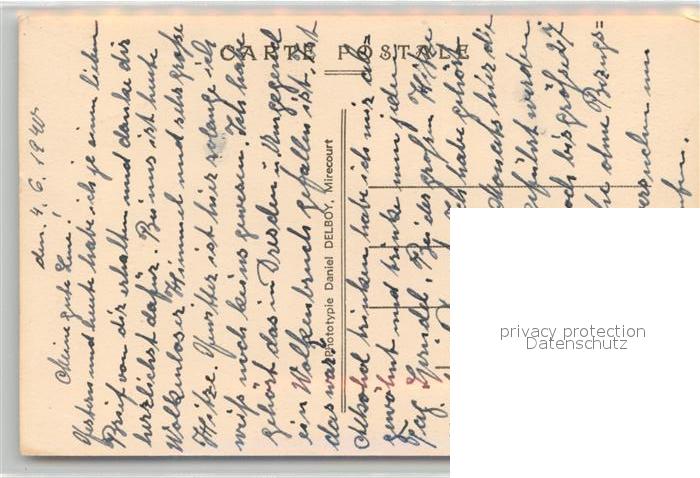 CARTE POSTALE
Phototypie Daniel DELBOY, Mirecourt
den 4. 6. 1940
Meine gute Leni!
Gestern und heute habe ich je einen lieben
Brief von dir erhalten und danke dir
herzlichst dafür. Bei uns ist heute
Wolkenloser Himmel und sehr große
Hitze. Gewitter ist hier solange ich
weiß noch keins gewesen. Ich habe
gehört das in Dresden u. Umgegend
ein Wolkenbruch gefallen ist, ist
das wahr
Alkohol trinken habe ich mir ab=
gewöhnt und trinke nun jeden
Tag Sprudel. Bei der großen Hitze
Ich habe gehört
hier die
geführt werden
noch bis
ohne Bezugs=
versuchen nun
privacy protection
Datenschutz